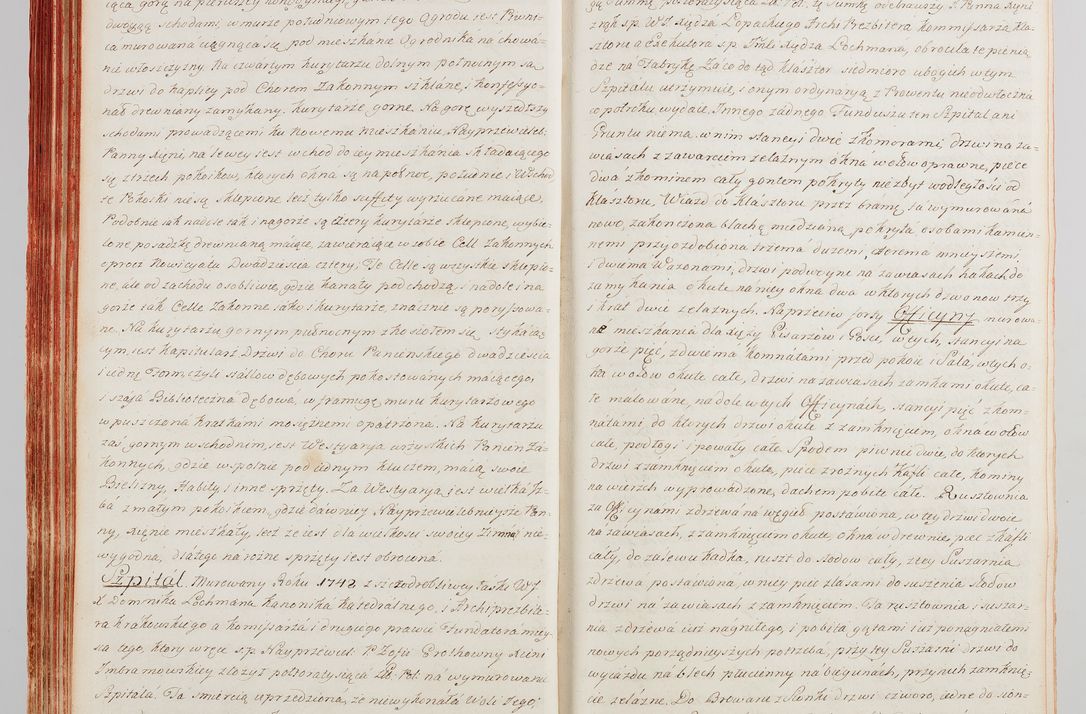 dwoygą schodami, w murze południowym tego Ogrodu jest Pewni-
ca murowana ciągnąca się pod mieszkanie Ogrodnika na chowa-
nie włoszczyzny. Na czwartym kurytarzu dolnym pułnocnym są
drzwi do kaplicy pod Chorem Zakonnym szklane, i konfessyo-
nał drewniany zamykany. kurytarze gorne. Na gorę wyszedłszy
schodami prowadzącemi ku Nowemu Mieszkaniu, Nayprzewieleb:
Panny Xięni, na lewey iest wchod do iey mieszkania składaiącego
się z trzech pokoikow, ktorych okna są na pułnoc, południe i Wschod
te Pokoiki nie są sklepione lecz tylko suffity wyrzucane maiące.
Podobnie iak na dole tak i na gorze są cztery kurytarze sklepione, wybie-
lone posadzkę drewnianą maiące, zawieraiące w sobie Cell Zakonnych
oprocz Nowicyatu Dwadzieścia cztery, Te Celle są wszystkie sklepio-
ne, ale od zachodu osobliwie, gdzie kanały pod chodzą i na dole i na
gorze tak Celle Zakonne iako i kurytarze, znacznie są porysowa-
ne. Na kurytarzu gornym pułnocnym z kościołem się stykaią-
cym, iest Kapitularz Drzwi do Choru Panieńskiego dwadzieścia
i iedną Form czyli stallow dębowych pokostowanych maiącego,
i szafa Biblioteczna dębowa, w framugę muru kurytarzowego
wpuszczona kratkami mosiężnemi opatrzona. Na kurytarzu
zaś gornym wschodnim, iest Westyarya wszystkich Panien Za-
konnych, gdzie wspolnie pod iednym kluczem, maią swoie
Bielizny, Habity i inne sprzęty. Za Westyaryą iest wielka Iz-
ba z małym pokoikiem, gdzie dawniey Nayprzewielebnieysze Pan-
ny, Xięnie mieszkały, lecz ze iest dla wielkości swoiey zimna nie-
wygodna, dlatego na rożne sprzęty iest obrocona.
Szpital. Murowany Roku 1748 z szczodrobliwey łaski WJ
X Dominika Lochmana Kanonika Katedralnego, i Archiprezbite-
ra krakowskiego a kommissarza i drugiego prawie Fundatora miey-
sca tego, ktory wręce sp. Nayprzewiel: P. Zofii Grothowny Xieni
Imbramowskiey złożył połtoratysiąca Zł: Pol: na wymurowani
Szpitala. Ta smiercią uprzedzioną, że niewykonała Woli Tego;
zrąk sp. WJ. Xiędza Łopackiego Archi Prezbitera Kommissarza Kla-
sztoru a Exekutora s.p. Imći Xiędza Lochmana, obrociła te pienią-
dze na Fabrykę Zaco do tąd klasztor siedmioro ubogich w tym
Szpitalu utrzymuie, i onym ordynaryą z Prowentu nieodwłoczną
co potroku wydaie. Innego żadnego Funduszu ten Szpital ani
Gruntu niema, w nim stancyi dwie z komorami, drzwi na za-
wiasach z zawarciem żelaznym okna w ołow oprawne, piece
dwa z kominem cały gontem pokryty nie zbyt w odległości od
klasztoru. Wiazd do klasztoru przez bramę za wymurowaną
nowo, zakończona blachą miedzianą pokryta osobami kamien-
nemi przyozdobiona trzema dużemi, cterema mnieyszemi,
i dwiema Wazonami, drzwi podwoyne na zawiasach hakach do
zamykania okute na niey okna dwa w ktorych dzwonow trzy
i krat dwie żelaznych. Naprzeciw forty Officyny murowa-
ne mieszkania dla Xięży Pisarzow i Gości, w tych, stancyi na
gorze pięć, z dwiema komnatami przed pokoie i Sala, w tych o-
kna w ołow okute całe, drzwi na zawiasach zamkami okute, ca-
łe malowane, na dole w tych Officynach, stancyi pięć z kom-
natami do ktorych drzwi okute z zamknięciem, okna w ołow
całe, podłogi i powały całe Spodem piwnic dwie, do ktorych
drzwi z zamknięciem okute, piece z rożnych kafli całe, kominy
na wierzch wyprowadzone, dachem pobite całe. Rusztownia
za Officynami z drzewa na węgieł postawiona, w tey drzwi dwoie
na zawiasach, z zamknięciem okute okna w drewnie, piec z kafli
cały, do zalewu kadka, ruszt do słodow cały, z tey Suszarnia
z drzewa postawiona, w niey piec z lasami do suszenia słodow
drzwi na zawiasach z zamknięciem. Ta rusztownia i suszar-
nia z drzewa iuż nagniłego, i pobita gątami iuż ponagniałemi
nowych porządnieyszych potrzeba, przy tey Suszarni drzwi do
wyiazdu na błech płucienny na biegunach, przy nich zamknię-
cie żelazne. Do Browaru z Sionki drzwi czworo, iedne do sion-